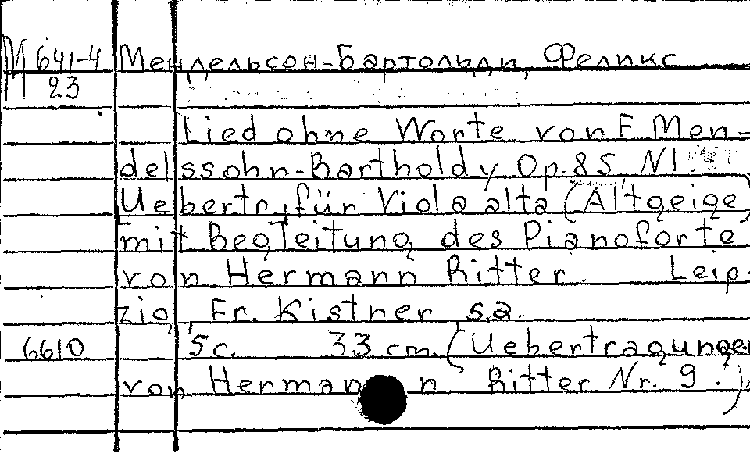 М 641-4 Мендельсон-Бартольди, Феликс
23
Lied ohne Worte von F. Men-
delssohn-Bartholdy Op. 85 N1.
Uebertr. für Viola alta (Altgeige)
mit Begleitung des Pianoforte
von Hermann Ritter. Leip-
zig, Fr. Kistner s.a.
6610 5c. 33 cm. (Uebertragungen
von Hermann Ritter Nr. 9.)